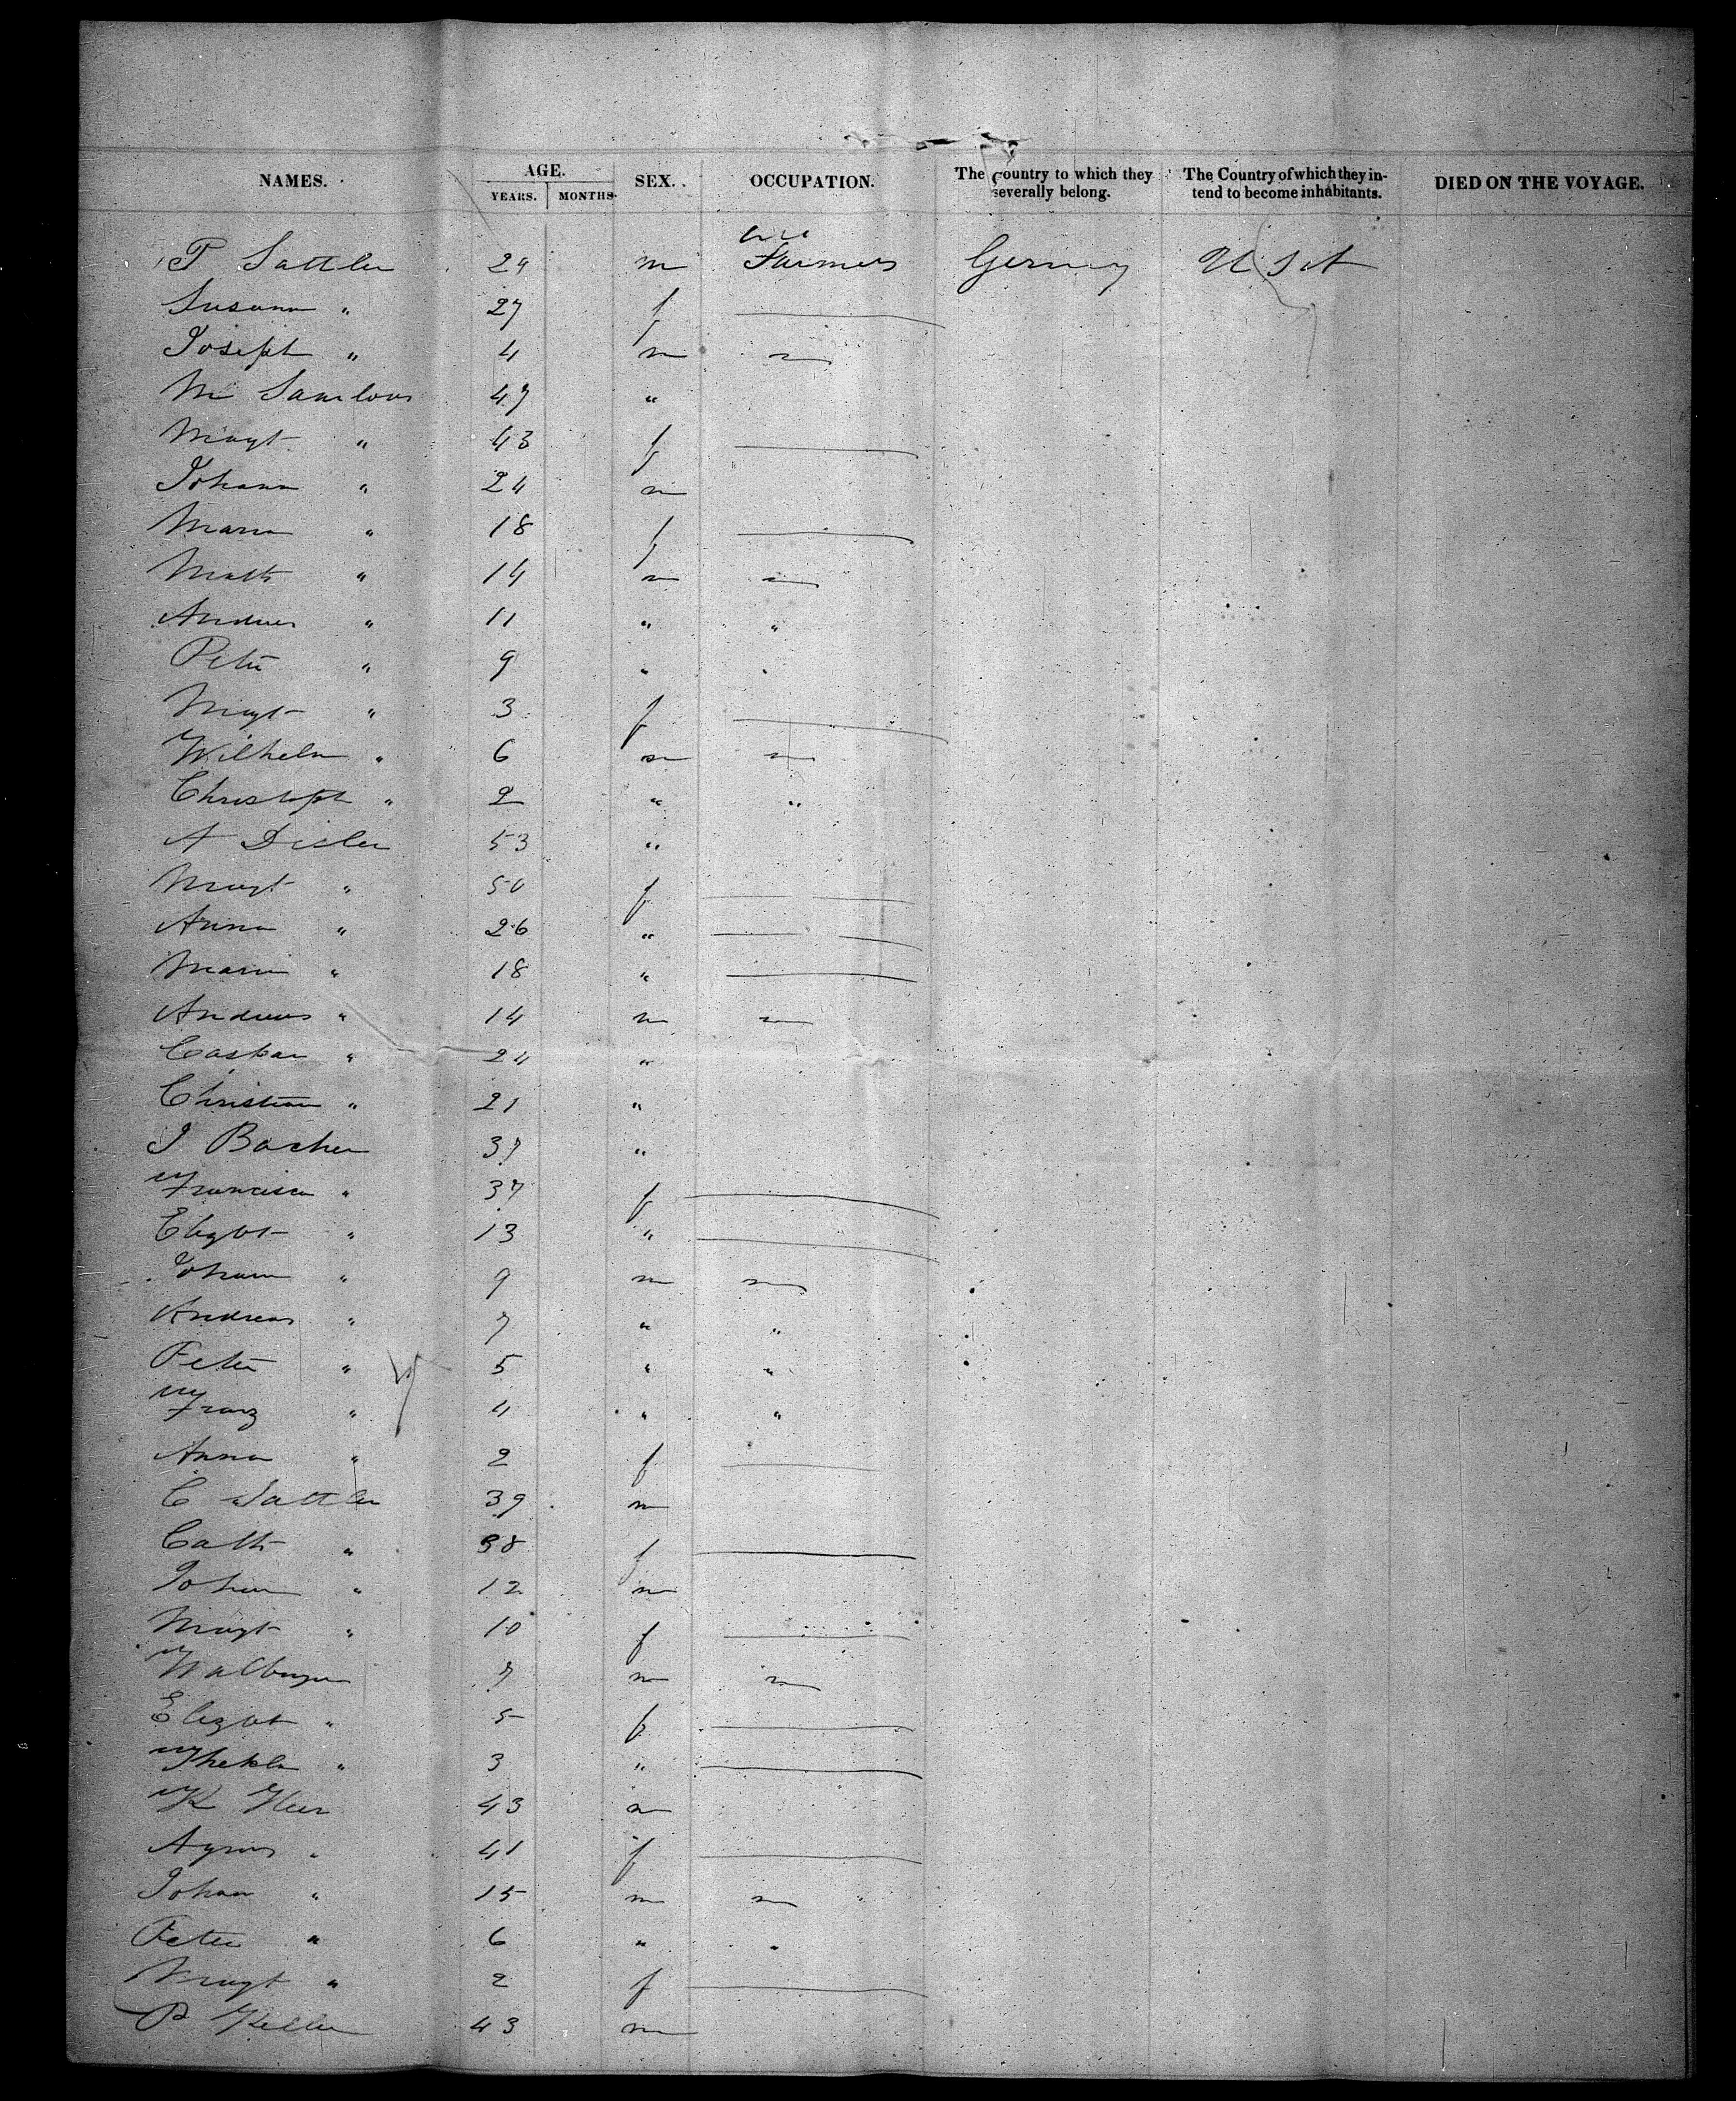 NAMES. AGE. YEARS. MONTHS. SEX. OCCUPATION. The Country to which they severally belong. The Country of which they intend to become inhabitants. DIED ON THE VOYAGE.
P Sattler 29 m Farmers Germany U S A
Susanna " 27 f
Joseph " 4 m
M 47 "
Magt " 43 f
Johann " 24 m
Maria " 18 f
Math " 14 m
Andreas " 11 " "
Peter " 9 " "
Magt " 3 f
Wilhelm " 6 m
Christoph " 2 " "
A Disler 53 "
Magt " 50 f
Anna " 26 "
Maria " 18 "
Andreas " 14 m
Caspar " 24 "
Christian " 21 "
J Bacher 37 "
Francisca " 37 f
Elizbt " 13 "
Johann " 9 m
Andreas " 7 " "
Peter " 5 " "
Franz " 4 " "
Anna " 2 f
C Sattler 39 m
Cath " 38 f
Johann " 12 m
Magt " 10 f
Walburga 7 m
Elizbt " 5 f
Thekla " 3 "
K 43 m
Agnes " 41 f
Johan " 15 m
Peter " 6 " "
Magt " 2 f
P Keller 43 m